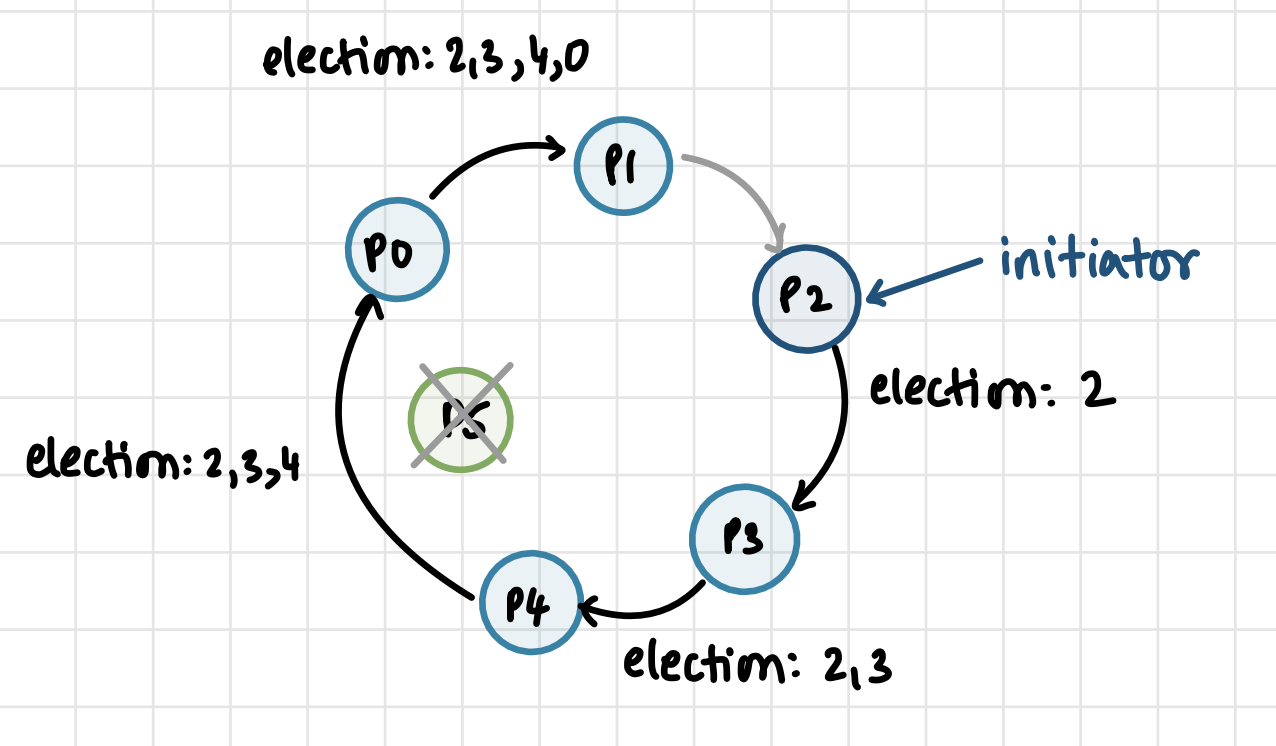 election: 2,3,4,0
P1
P0
P2
initiator
election: 2
P5
election: 2,3,4
P3
P4
election: 2,3